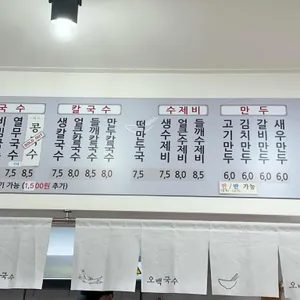 국수
칼국수
수제비
만두
열무국수
콩국수
생칼국수
얼큰칼국수
들깨칼국수
만두칼국수
떡만두국
생수제비
얼큰수제비
들깨수제비
고기만두
김치만두
갈비만두
새우만두
7,5 8,5
7,5 8,0 8,5 8,0
7,5
7,5 8,0 8,5
6,0 6,0 6,0 6,0
기 가능 (1,500원 추가)
반/반 가능
오백국수
오백국수